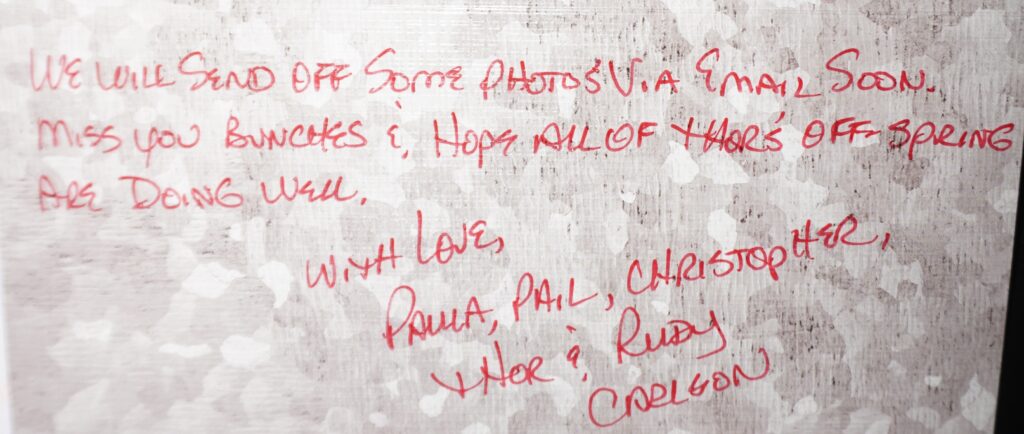 WE WILL SEND OFF SOME PHOTO'S VIA EMAIL SOON.
MISS YOU BUNCHES & HOPE ALL OF THOR'S OFF-SPRING
ARE DOING WELL.
WITH LOVE,
PAULA, PAIL, CHRISTOPHER,
THOR & RUDY
CARLSON